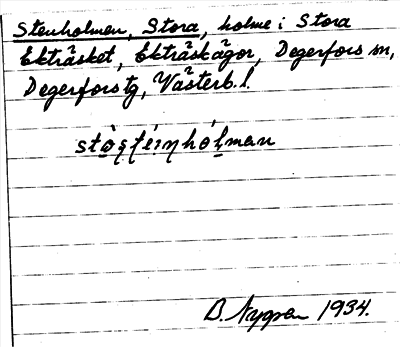 Stenholmen, Stora, holme i Stora
Ekträsket, Ekträskägor, Degerfors sn,
Degerfors tg, Västerb. l.
B. Nygren 1934.